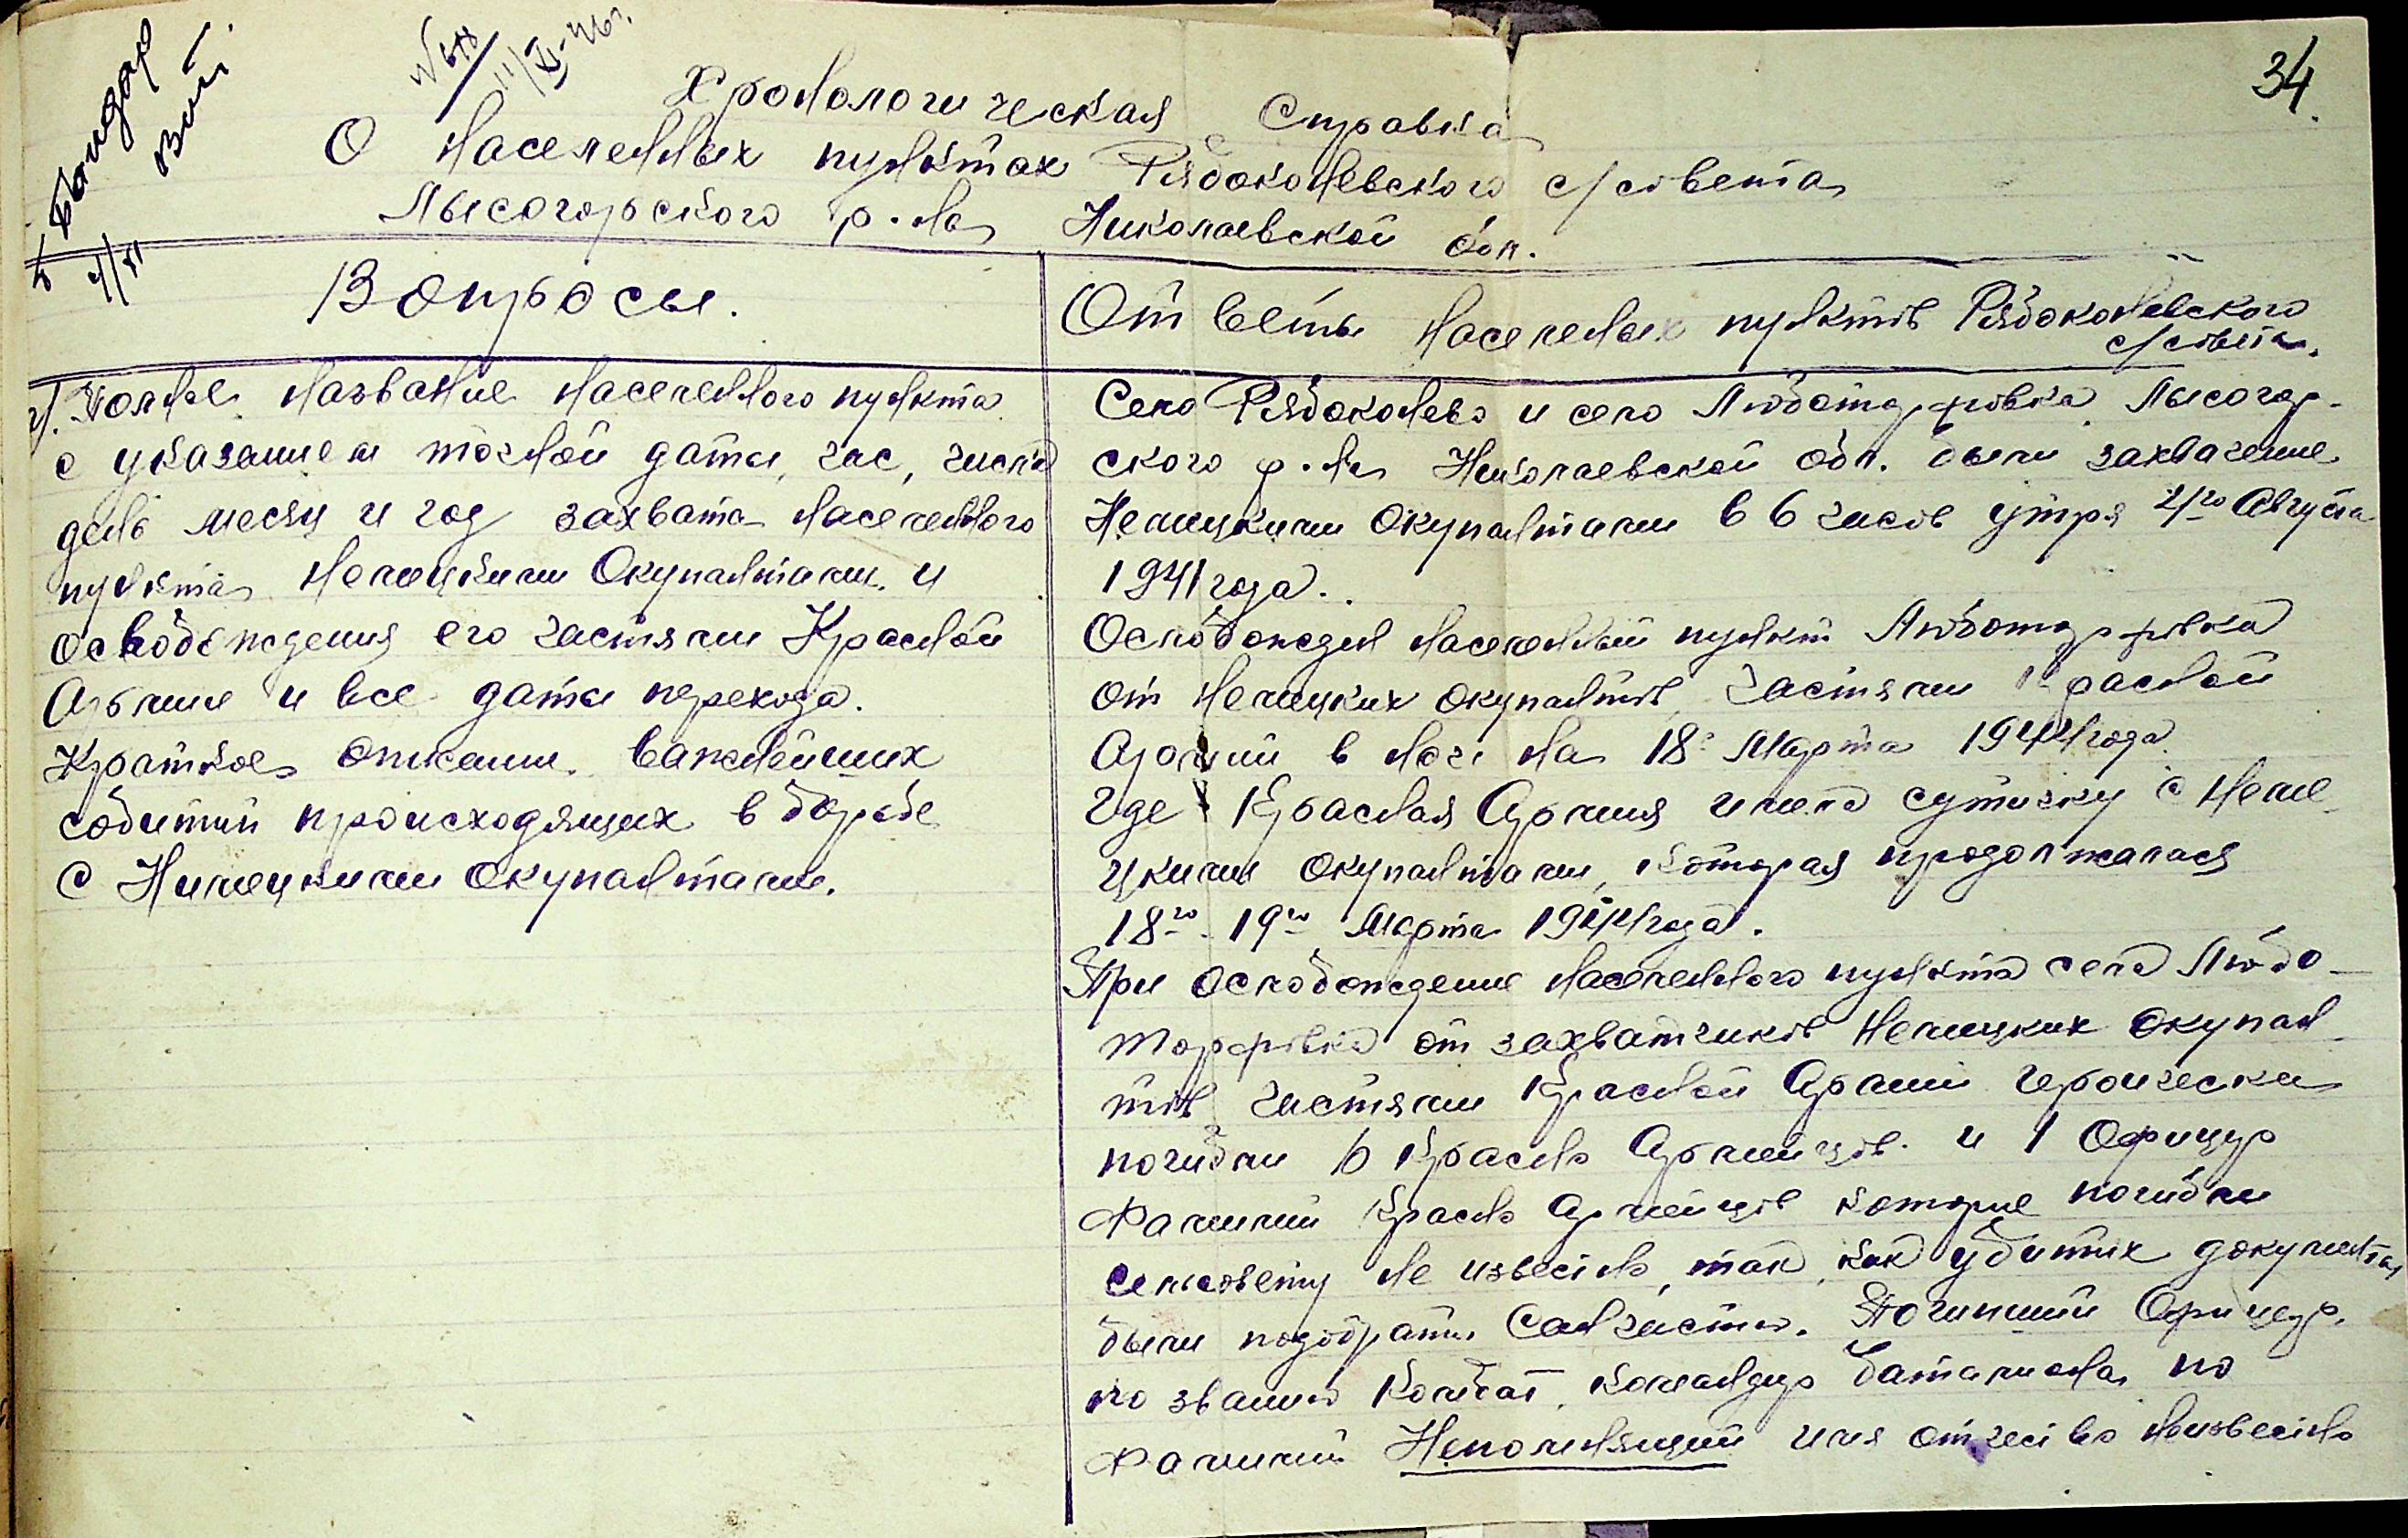 34.
Бондар
№ 648
11/XI-46г.
Хронологическая Справка
О населенных пунктах Рябоконевского с/совета
Лысогорского р-на Николаевской обл.
Вопросы.
1). Полное название населенного пункта
с указанием точной даты, час, число
день месяц и год захвата населенного
пункта Немецкими Окупантами и
освобождения его частями Красной
Армии и все даты перехода.
Краткое описание важнейших
событий происходящих в борьбе
с Нимецкими окупантами.
Ответы населеных пунктов Рябоконевского
с/совета.
Село Рябоконево и село Любоmарфовка Лысогор-
ского р-на Николаевской обл. были захвачение
Немецкими Окупантами в 6 часов утря 4го Августа
1941 года.
Ослобожден населенный пункт Любомарфовка
от немецких окупантов, частями Красной
Армии в ночь на 18е Марта 1944 года.
где Красная Армия имела сутичку с неме-
цкими окупантами, которая продолжалася
18го-19го Марта 1944 года.
При ослобождение населенного пункта села Любо-
марфовка от захватчиков Немецких окупан-
тов частями Красной Армии героически
погибли 6 Красно Армейцов и 1 Офицер
Фамилии Красно Армейцов которие погибли
сельсовету не известно, так как убитих документы
были подобраты Санчастю. Погипший Офицер,
по званию Комбат, командир батальона по
Фамилии Неполнящий имя отчество неизвестно